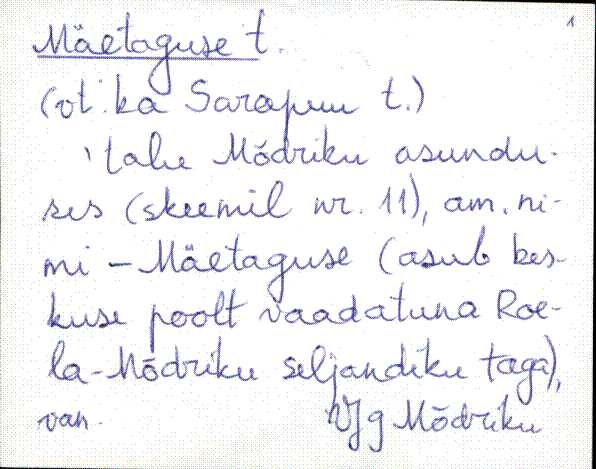 1
Mäetaguse t.
(vt. ka Sarapuu t.)
'talu Mõdriku asundu-
ses (skeemil nr. 11), am. ni-
mi – Mäetaguse (asub kes-
kuse poolt vaadatuna Roe-
la-Mõdriku seljandiku taga),
van. VJg Mõdriku